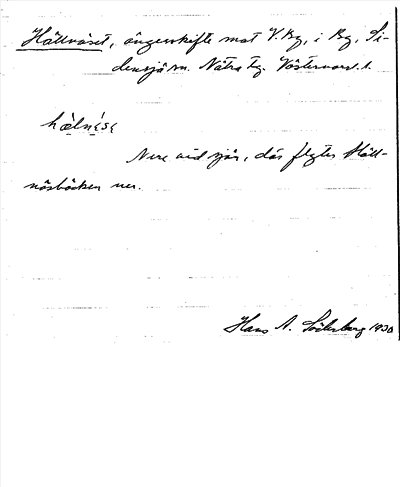 Hällnäset, ängesskifte mot V.By, i By, Si-
densjö sn. Nätra tg. Västernorrl. l.
Nere vid sjön, där flyter Häll-
näsbäcken ner.
Hans A. Söderberg 1930